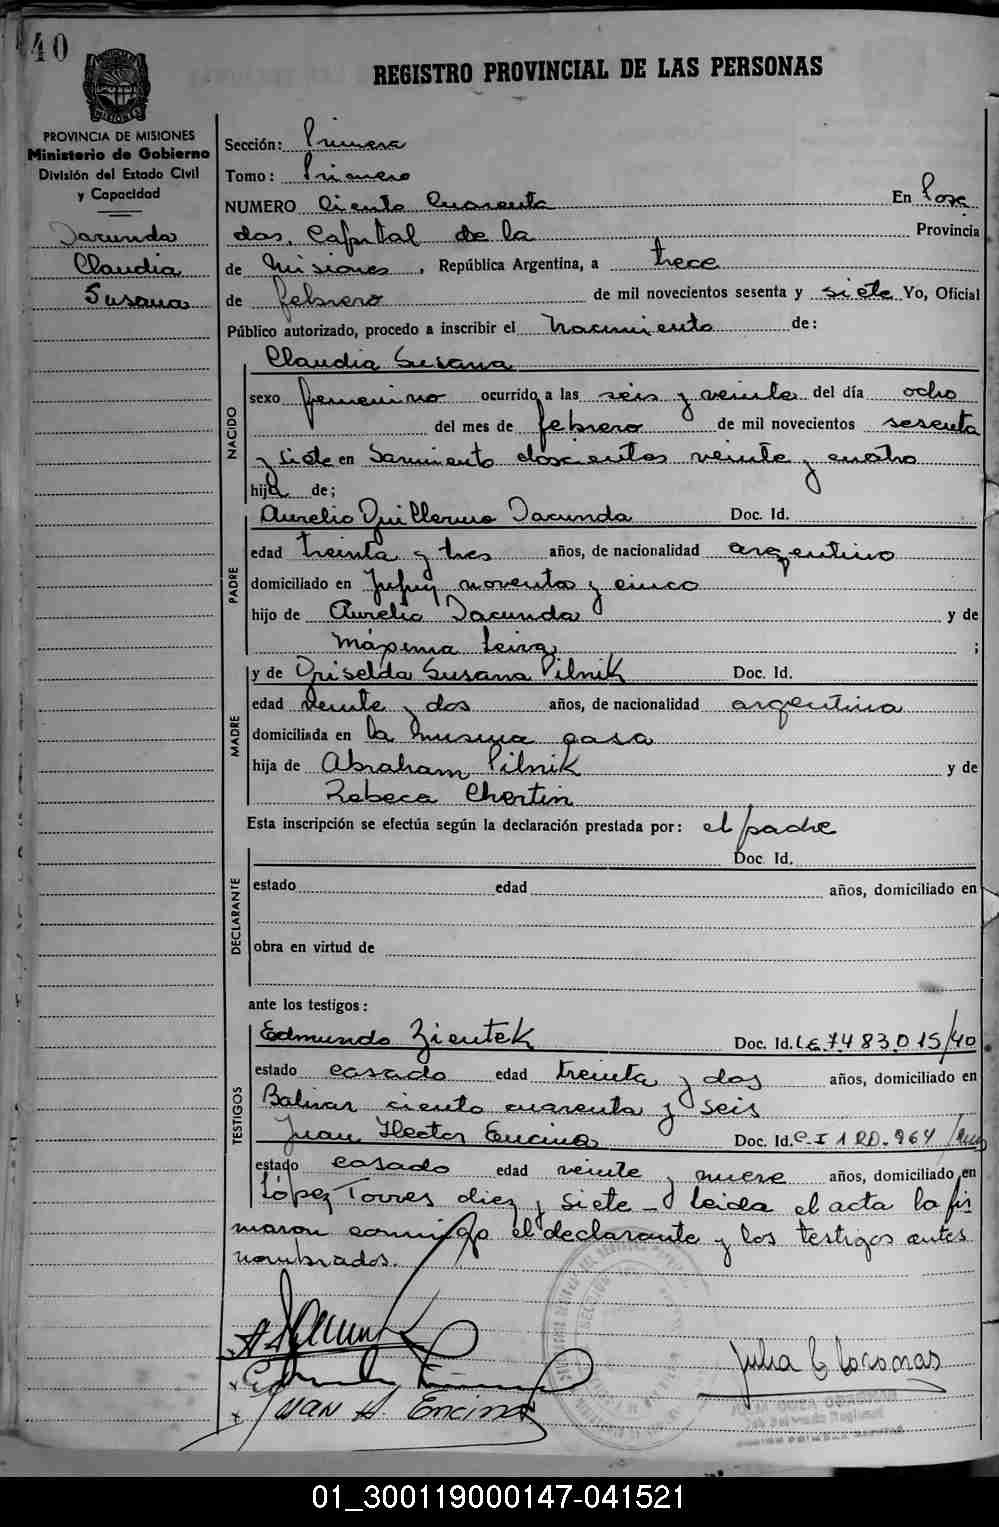 40
REGISTRO PROVINCIAL DE LAS PERSONAS
MISIONES
PROVINCIA DE MISIONES
Ministerio de Gobierno
División del Estado Civil
y Capacidad
Dacunda
Claudia
Susana
Sección: Primera
Tomo: Primero
NUMERO Ciento Cuarenta En Posa
das, Capital de la Provincia
de Misiones, República Argentina, a trece
de febrero de mil novecientos sesenta y siete Yo, Oficial
Público autorizado, procedo a inscribir el nacimiento de:
Claudia Susana
NACIDO
sexo femenino ocurrido a las seis y veinte del día ocho
del mes de febrero de mil novecientos sesenta
y siete en Sarmiento doscientos veinte y cuatro
hija de;
PADRE
Aurelio Guillermo Dacunda Doc. Id.
edad treinta y tres años, de nacionalidad argentino
domiciliado en Jujuy noventa y cinco
hijo de Aurelio Dacunda y de
Máxima Leiva ;
MADRE
y de Griselda Susana Pilnik Doc. Id.
edad veinte y dos años, de nacionalidad argentina
domiciliada en la misma casa
hija de Abraham Pilnik y de
Rebeca Chertin
Esta inscripción se efectúa según la declaración prestada por: el padre
DECLARANTE
Doc. Id.
estado edad años, domiciliado en
obra en virtud de
ante los testigos:
TESTIGOS
Edmundo Zientek Doc. Id. L.E. 7483015/40
estado casado edad treinta y dos años, domiciliado en
Bolivar ciento cuarenta y seis
Juan Hector Encina Doc. Id. C.I 1 RD. 964
estado casado edad veinte y nueve años, domiciliado en
López Torres diez y siete - Leida el acta la fir
maron conmigo el declarante y los testigos antes
nombrados.
Juan H. Encina
01_300119000147-041521